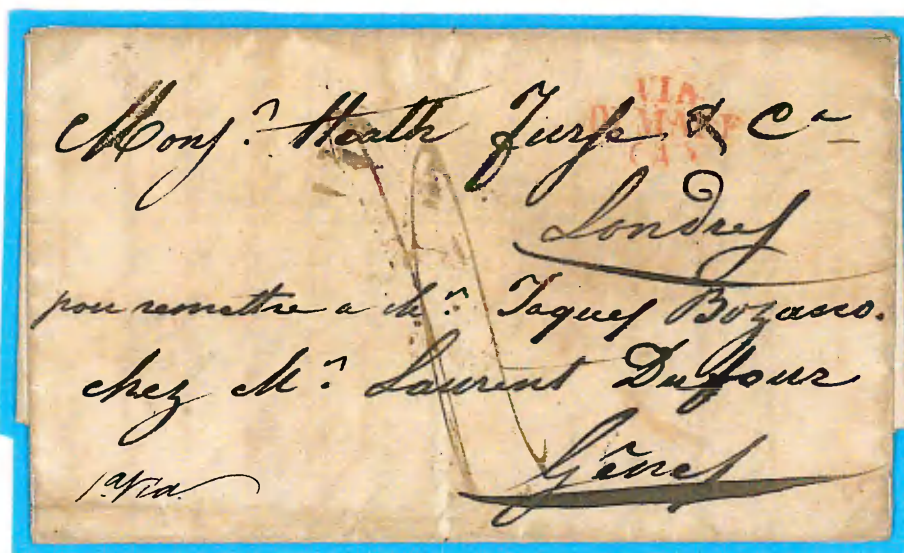 VIA
Monsr. Heath Furse & Ca
Londres
pou remettre a Mr. Jaques Bozasco.
chez Mr. Laurent Duffour
Gênes
1a. Via.